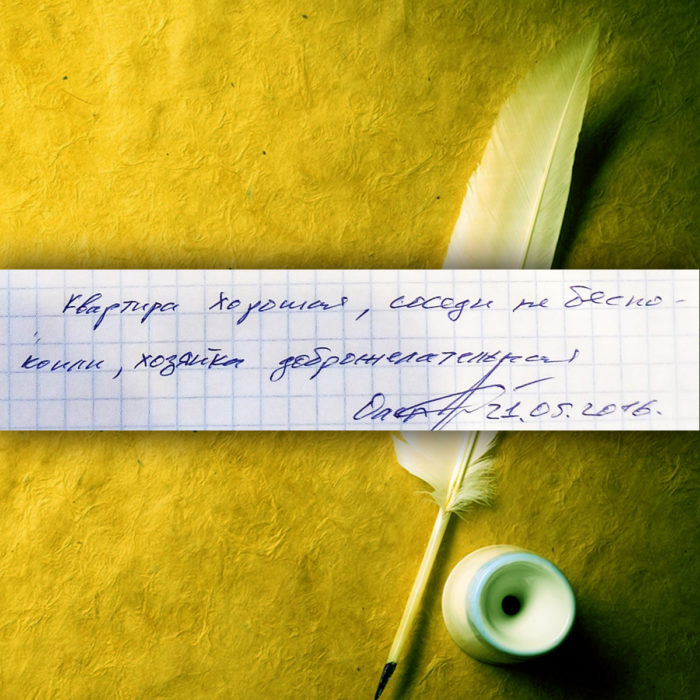 Квартира хорошая, соседи не беспо-
коили, хозяйка доброжелательная
21.05.2016.